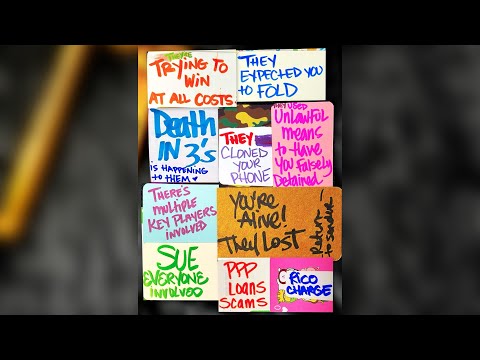 THEY'RE
TRYING TO
WIN
AT ALL COSTS
THEY
EXPECTED YOU
to FOLD
Death
IN 3's
is HAPPENING
to THEM
THEY
CLONED
YOUR
PHONE
THEY USED
UNLAWFUL
means
to HAVE
YOU FALSELY
Detained.
THERE'S
MULTIPLE
KEY PLAYERS
INVOLVED
YOU'RE
ALIVE!
They Lost
Return
to sender
SUE
EVERYONE
INVOLVED
PPP
Loans
SCAMS
RICO
CHARGE